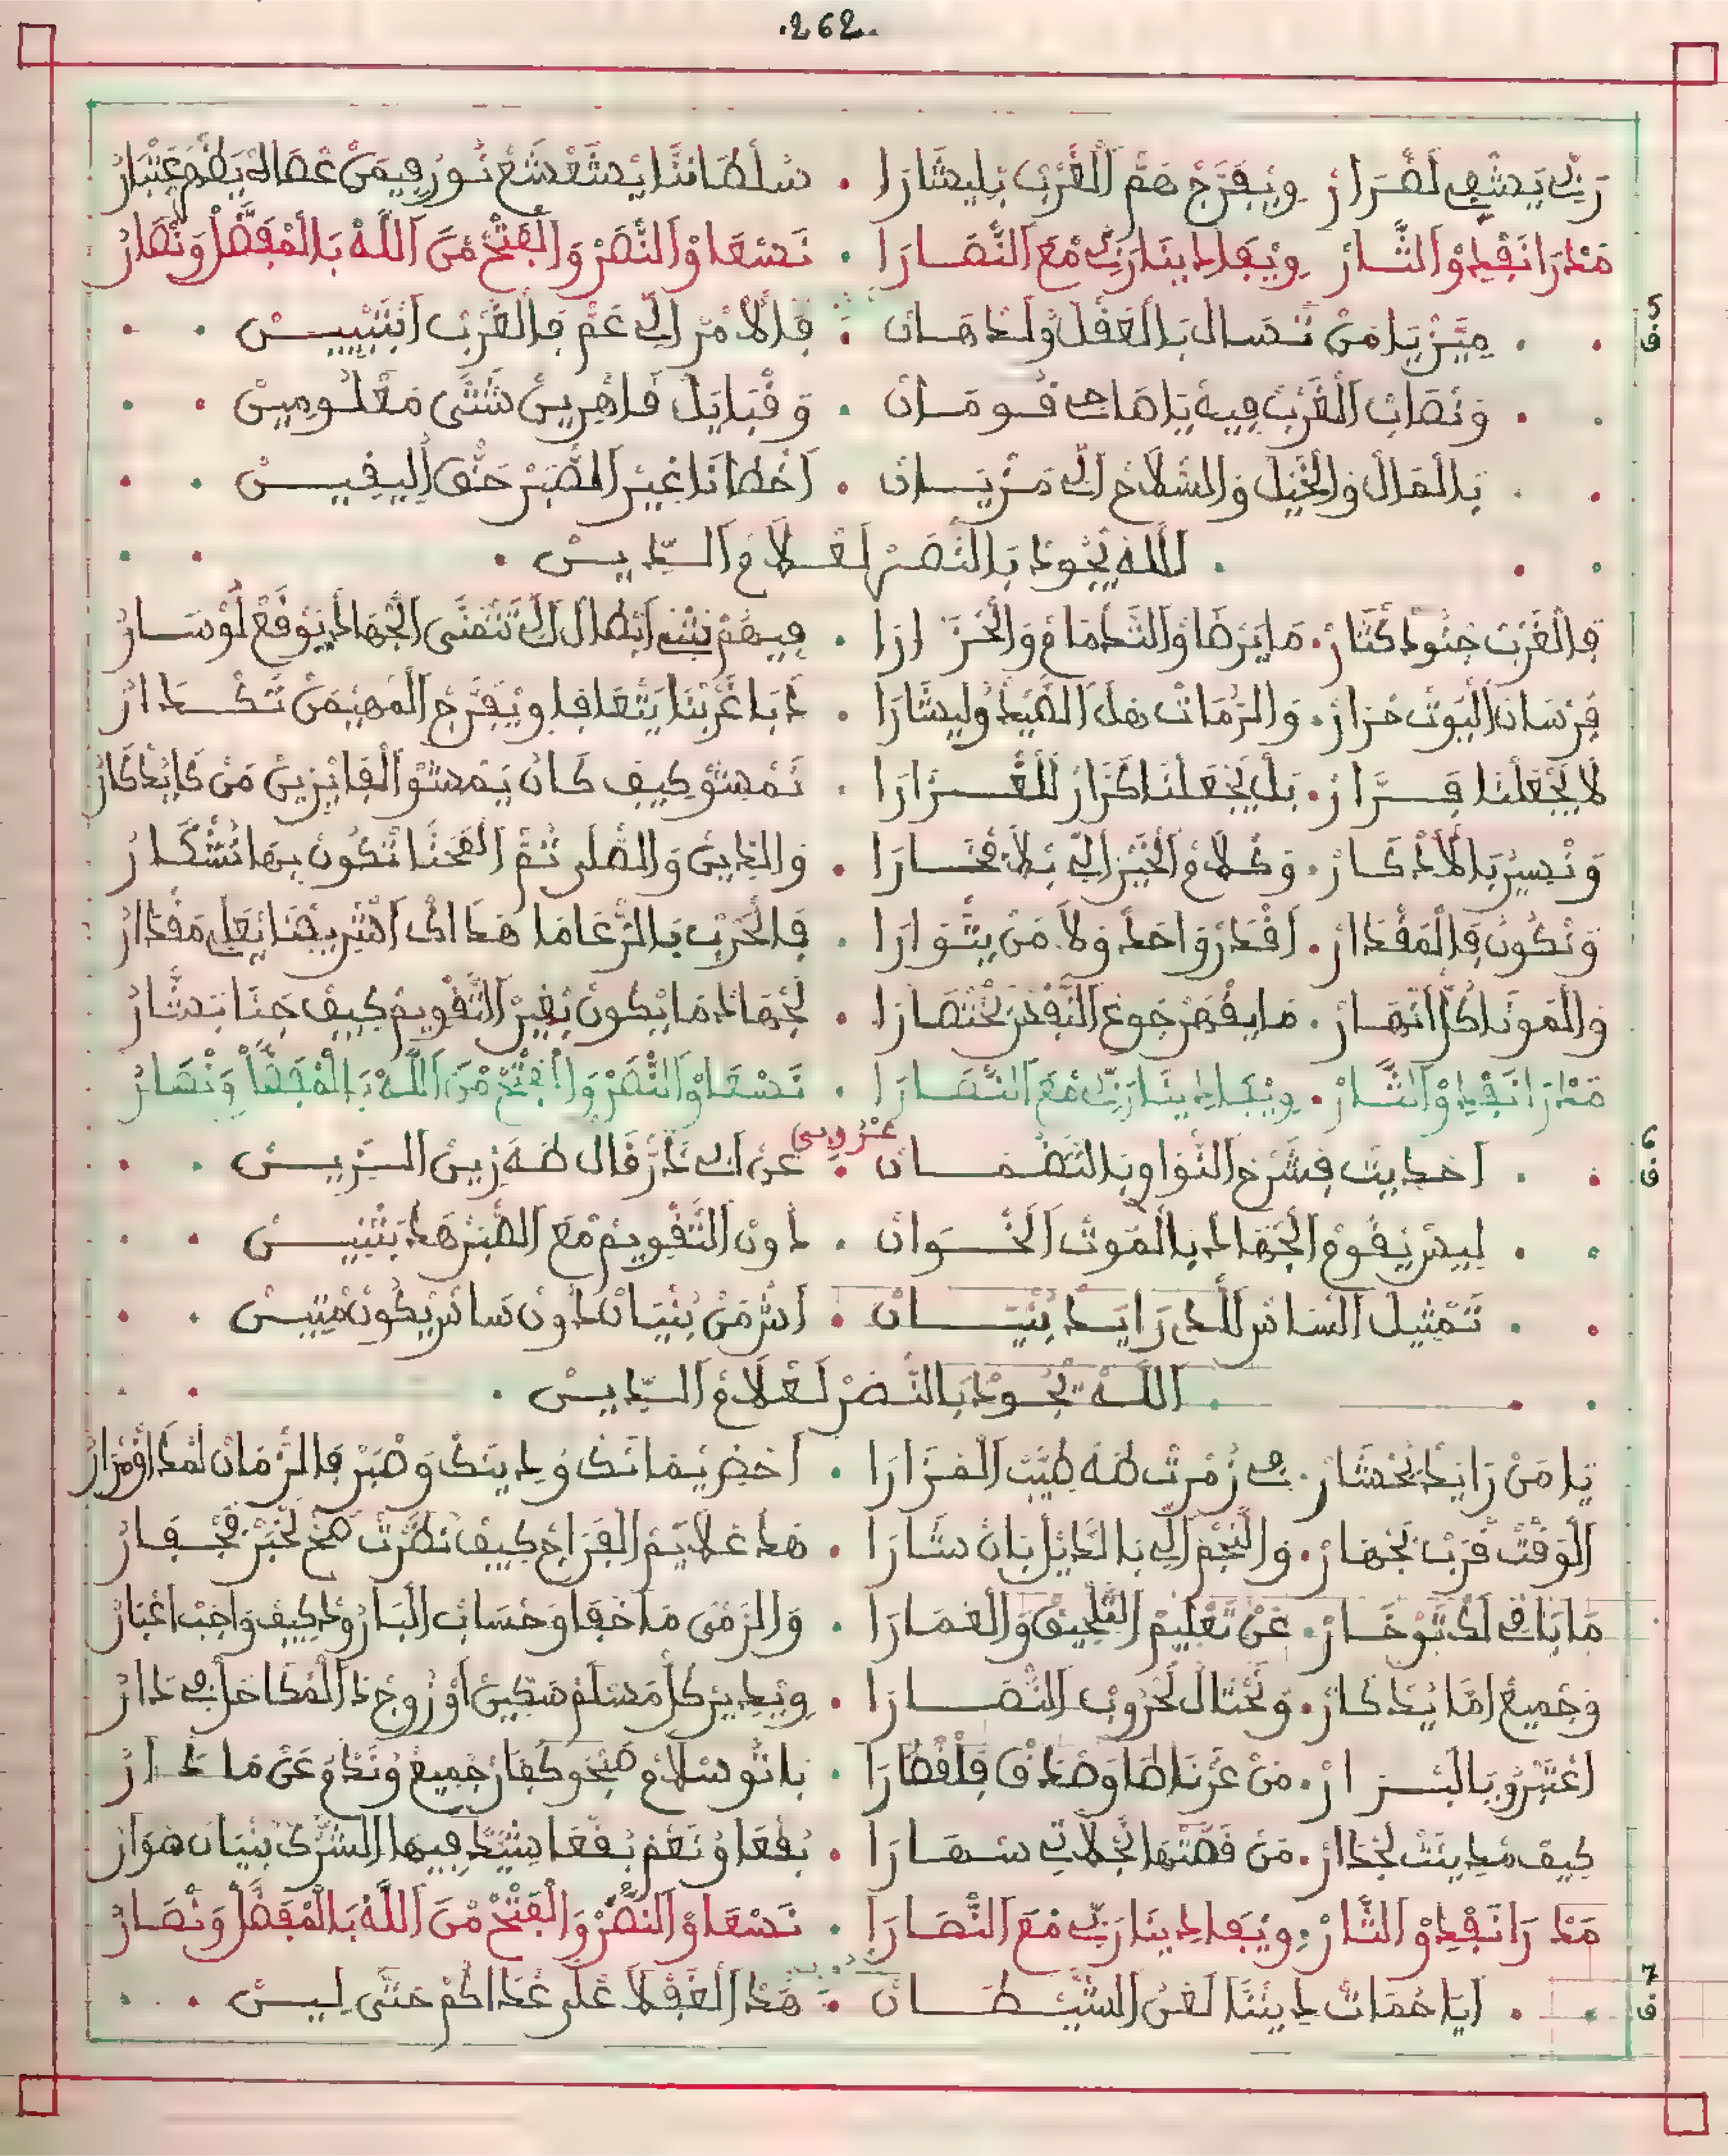 .262.
رَبِّي يَشْفِي لَضْرَارْ وِيفَرَّجْ هَمّ الْغَرْبْ بْلِيشَارَا . سُلْطَانْنَا يْشَعْشَعْ نُورُ فِيمَنْ عْصَاكْ
مَدْرَا نَفْدِيوْ الثَّارْ وِيفَادِينَا رَبِّي مْعَ النّْصَارَا . نَسْعَاوْ النَّصْرْ وَالْفَتْحْ مْنَ اللَّهْ بَالْمْفَضَّلْ وَنْصَارُ
5 ف
مِيَّزْ يَا مَنْ تْسَالْ بَالْعْقَلْ وَلْدهَانْ : فَالْأَمْرْ الِّي عَمّ فَالْغَرْبْ
وَنْصَابْ الْغَرْبْ فِيهْ يَا صَاحِي قُومَانْ . وَقْبَايَلْ قَاهْرِينْ شَتَّى مَعْلُومِينْ
بَالْمَالْ وَالْخَيْلْ وَالسّْلَاحْ الِّي مَزْيَانْ . اخْطَانَا غِيرْ الصّْبَرْ حَقّ الْيَقِينْ
اللَّهْ يْجُودْ بَالنَّصْرْ لَعْلَامْ الدِّينْ
فَالْغَرْبْ جْنُودْ كْثَارْ . مَا يَرْضَاوْ النّْدَامَا وَالْخَزَارَا . فِيهُمْ بْنِي ابْطَالْ الِّي تَتْمَنَّى الْجْهَادْ يْوَقَّعْ
فُرْسَانْ الْبُوتْ حْرَارْ . وَالرُّمَاتْ هَلْ الصَّيْدْ وْلِيشَارَا . دَابَا غَرْبْنَا يَتْعَافَا وِيفَرَّجْ الْمْهَيْمَنْ تَكْدَارُ
لَا يَجْعَلْنَا فَرَّارْ . بَلْ يَجْعَلْنَا كَرَّارْ لَلْغَزَارَا . نَمْشُو كِيفْ كَانْ يَمْشُو الْفَايْزِينْ مَنْ كَايَدْكَارُ
وَنْسِيرْ بَالْأَدْكَارْ . وَكْلَامْ الْخَيْرْ الِّي بْلَا حْقَارَا . وَالدِّينْ وَالصَّلْحْ ثُمَّ الْمْحَنَّا تْكُونْ بِهَا نَشْكَارُ
وَنْكُونْ فَالْمَقْدَارْ . اقْدَرْ وَاحَدْ وَلَا مَنْ يَتْوَارَا . فَالْحَرْبْ بَالزّْعَامَا هَدَاكْ
وَالْمُونَا كُلّ انْهَارْ . مَا يَقْهَرْ جُوعْ النَّفْسْ تَخْتْصَارَا . لَجْهَادْ مَا يْكُونْ بْغِيرْ التَّقْوِيمْ كِيفْ جَانَا
مَدْرَا نَفْدِيوْ الثَّارْ . وِيفَادِينَا رَبِّي مْعَ النّْصَارَا . نَسْعَاوْ النَّصْرْ وَالْفَتْحْ مْنَ اللَّهْ بَالْمْفَضَّلْ وَنْصَارُ
6 ف
احْدِيثْ فْشَرْحْ النّْوَاوِي بَالتَّضْمَانْ : عَنْ ابِي دَرّ قَالْ طَهَ زِينْ الزِّينْ
عَزْوِي
لِيسْ يْقُومْ الْجْهَادْ يَا الْمُوتْ الْخْوَانْ . دُونْ التَّقْوِيمْ مْعَ الصّْبَرْ هَدْ
تَمْثِيلْ السَّاسْ لَلْدِي رَايَدْ بَنْيَانْ . اشْ مَنْ بَنْيَانْ دُونْ سَاسْ يْكُونْ مْتِينْ
اللَّهْ يْجُودْ بَالنَّصْرْ لَعْلَامْ الدِّينْ
يَا مَنْ رَايَدْ تَحْشَارْ . فِي زُمْرَتْ طَهَ طَيَّبْ الْمْزَارَا . احْضِي يْمَانَكْ وْدِينَكْ وَصْبَرْ فَالزّْمَانْ
الْوَقْتْ قْرَبْ تَجْهَارْ . وَالنَّجْمْ الِّي بَالدَّيْلْ بَانْ شَارَا . هَدْ عْلَايَمْ الْفْرَاجْ كِيفْ نَظْرَتْ صَحّ لَخْبَرْ
مَا بَاقِي لَكْ تُوخَارْ . عَنْ تَعْلِيمْ التَّلْحِيقْ وَالْعْمَارَا . وَالرَّمْيْ مَا خْفَا وَحْسَابْ الْبَارُودْ كِيفْ وَاجَبْ اعْبَارُ
وَجْمِيعْ امَّا يَدْكَارْ . وَنْحْتَالْ لَحْرُوبْ النّْصَارَا . وِيدِيرْ كُلّ مَسْلَمْ سَكِّينْ اوْ زُوجْ دَ الْمْكَاحَلْ فِي دَارُ
اعْتَبْرُو يَا لَبْرَارْ . مَنْ غَرْنَاطَا وَصْدَفْ فَلَقْطَارَا . بَاتُو سْلَامْ صَبْحُو كُفَّارْ جْمِيعْ وَنْدَمْ عَنْ مَا دَارُ
كِيفْ مْدِينَتْ لَجْدَارْ . مَنْ قَصَّتْهَا لَجْلَاتِي سْهَارَا . بُقْعَا وْنَعْمْ بُقْعَا شَيَّدْ فِيهَا الشَّرْكْ بَنْيَانْ
مَدْرَا نَفْدِيوْ الثَّارْ . وِيفَادِينَا رَبِّي مْعَ النّْصَارَا . نَسْعَاوْ النَّصْرْ وَالْفَتْحْ مْنَ اللَّهْ بَالْمْفَضَّلْ وَنْصَارُ
7 ف
ايَا حُمَاتْ دِينَّا لَعْنُ الشَّيْطَانْ : هَدْ الْغَفْلَا عْلَى عْدَاكُمْ حَتَّى لِينْ